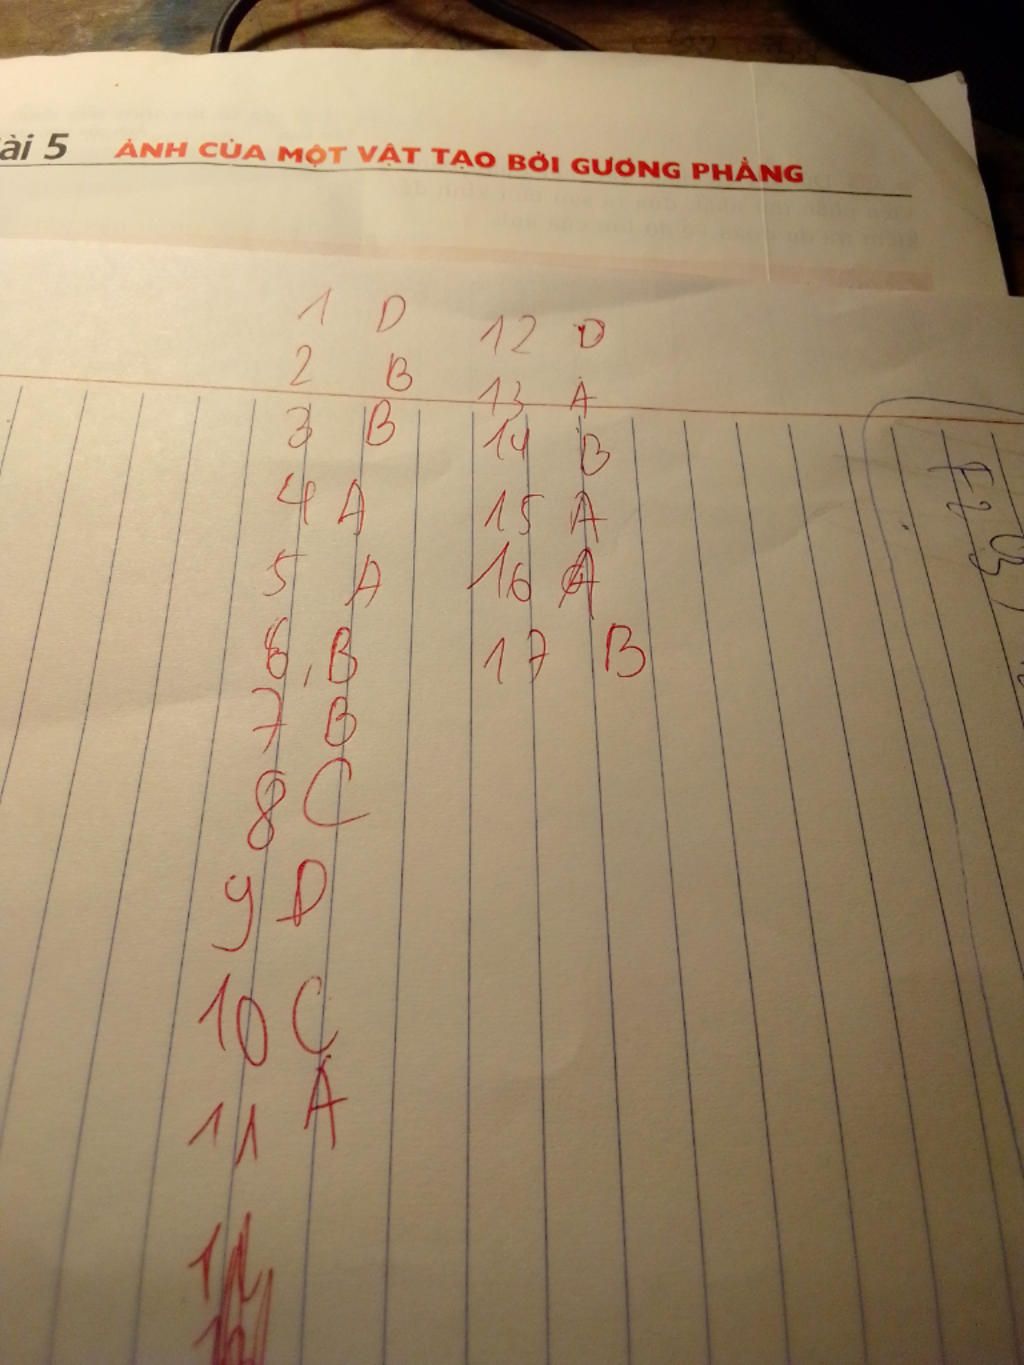 ài 5 ẢNH CỦA MỘT VẬT TẠO BỞI GƯƠNG PHẲNG
1 D
2 B
3 B
4 A
5 A
6, B
7 B
8 C
9 D
10 C
11 A
12 D
13 A
14 B
15 A
16 A
17 B